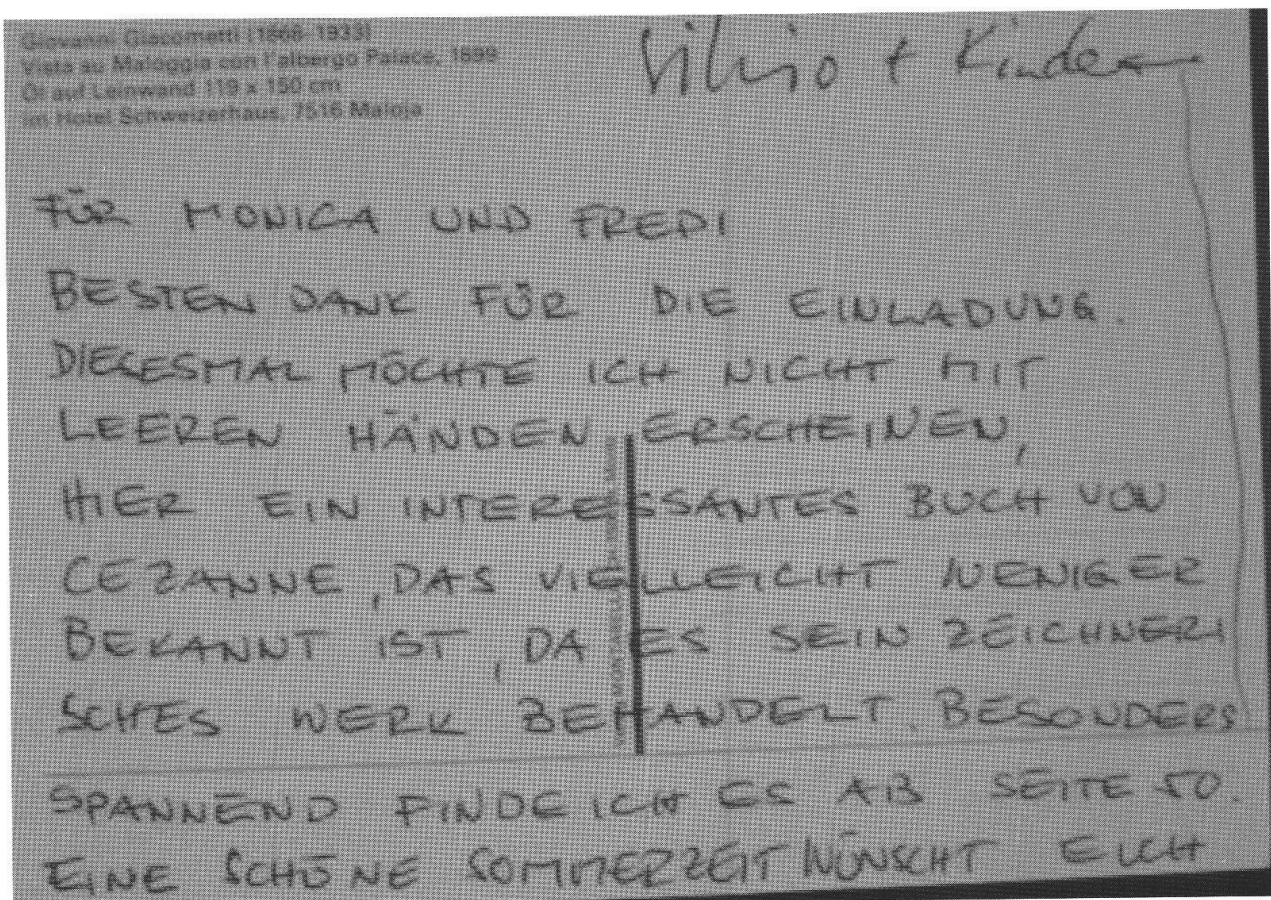 Giovanni Giacometti (1868-1933)
Vista su Maloggia con l'albergo Palace, 1899
Öl auf Leinwand 119 x 150 cm
im Hotel Schweizerhaus, 7516 Maloja
Silvio + Kinder
FÜR MONICA UND FREDI
BESTEN DANK FÜR DIE EINLADUNG.
DIESESMAL MÖCHTE ICH NICHT MIT
LEEREN HÄNDEN ERSCHEINEN,
HIER EIN INTERESSANTES BUCH VON
CEZANNE, DAS VIELLEICHT WENIGER
BEKANNT IST, DA ES SEIN ZEICHNERI
SCHES WERK BEHANDELT. BESONDERS
SPANNEND FINDE ICH ES AB SEITE 50.
EINE SCHÖNE SOMMERZEIT WÜNSCHT EUCH